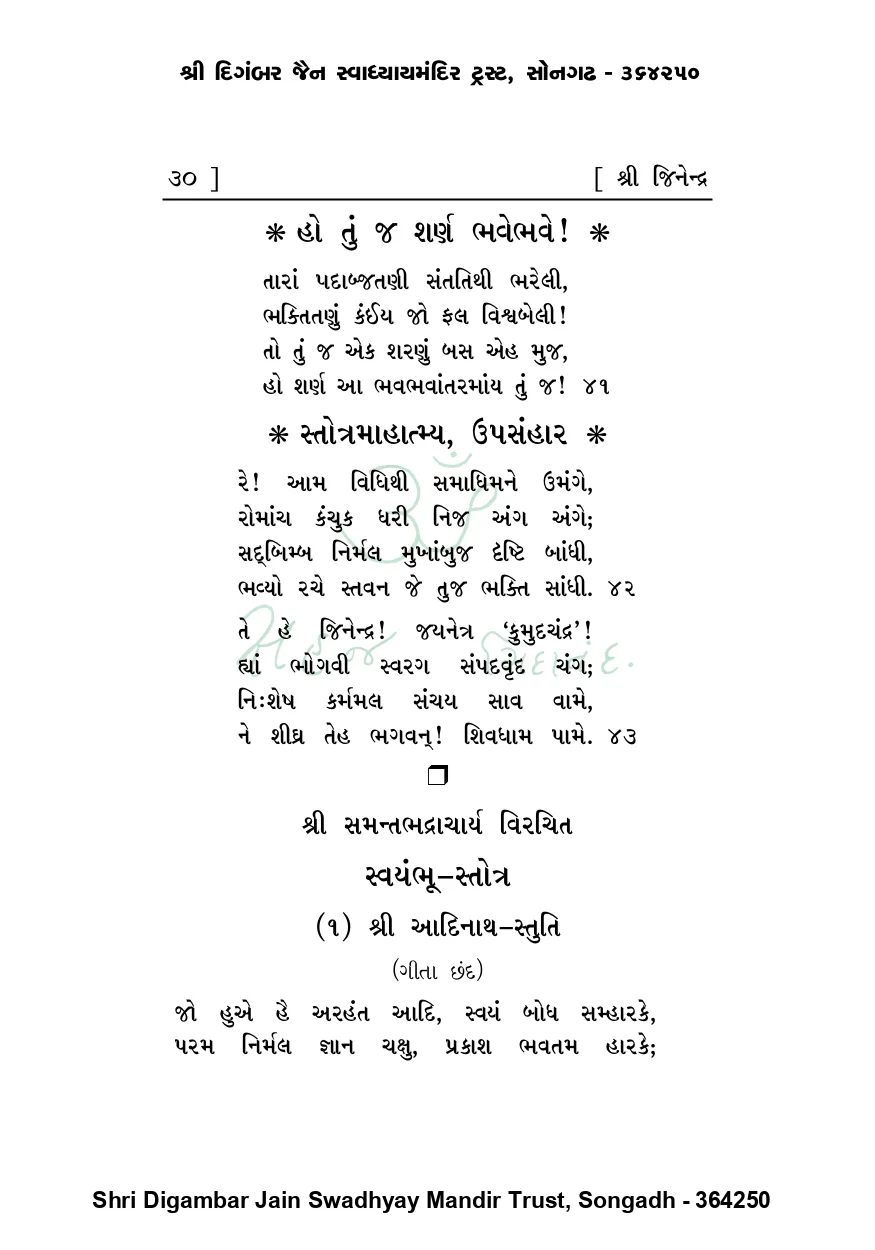 શ્રી દિગંબર જૈન સ્વાધ્યાયમંદિર ટ્રસ્ટ, સોનગઢ - ૩૬૪૨૫૦
૩૦ ] [ શ્રી જિનેન્દ્ર
❋ હો તું જ શર્ણ ભવેભવે! ❋
તારાં પદાબ્જતણી સંતતિથી ભરેલી,
ભક્તિતણું કંઈય જો ફલ વિશ્વબેલી!
તો તું જ એક શરણું બસ એહ મુજ,
હો શર્ણ આ ભવભવાંતરમાંય તું જ! ૪૧
❋ સ્તોત્રમાહાત્મ્ય, ઉપસંહાર ❋
રે! આમ વિધિથી સમાધિમને ઉમંગે,
રોમાંચ કંચુક ધરી નિજ અંગ અંગે;
સદ્બિમ્બ નિર્મલ મુખાંબુજ દૃષ્ટિ બાંધી,
ભવ્યો રચે સ્તવન જે તુજ ભક્તિ સાંધી. ૪૨
તે હે જિનેન્દ્ર! જયનેત્ર ‘કુમુદચંદ્ર’!
હ્યાં ભોગવી સ્વરગ સંપદવૃંદ ચંગ;
નિઃશેષ કર્મમલ સંચય સાવ વામે,
ને શીઘ્ર તેહ ભગવન્! શિવધામ પામે. ૪૩
❒
શ્રી સમન્તભદ્રાચાર્ય વિરચિત
સ્વયંભૂ–સ્તોત્ર
(૧) શ્રી આદિનાથ–સ્તુતિ
(ગીતા છંદ)
જો હુએ હૈ અરહંત આદિ, સ્વયં બોધ સમ્હારકે,
પરમ નિર્મલ જ્ઞાન ચક્ષુ, પ્રકાશ ભવતમ હારકે;
Shri Digambar Jain Swadhyay Mandir Trust, Songadh - 364250